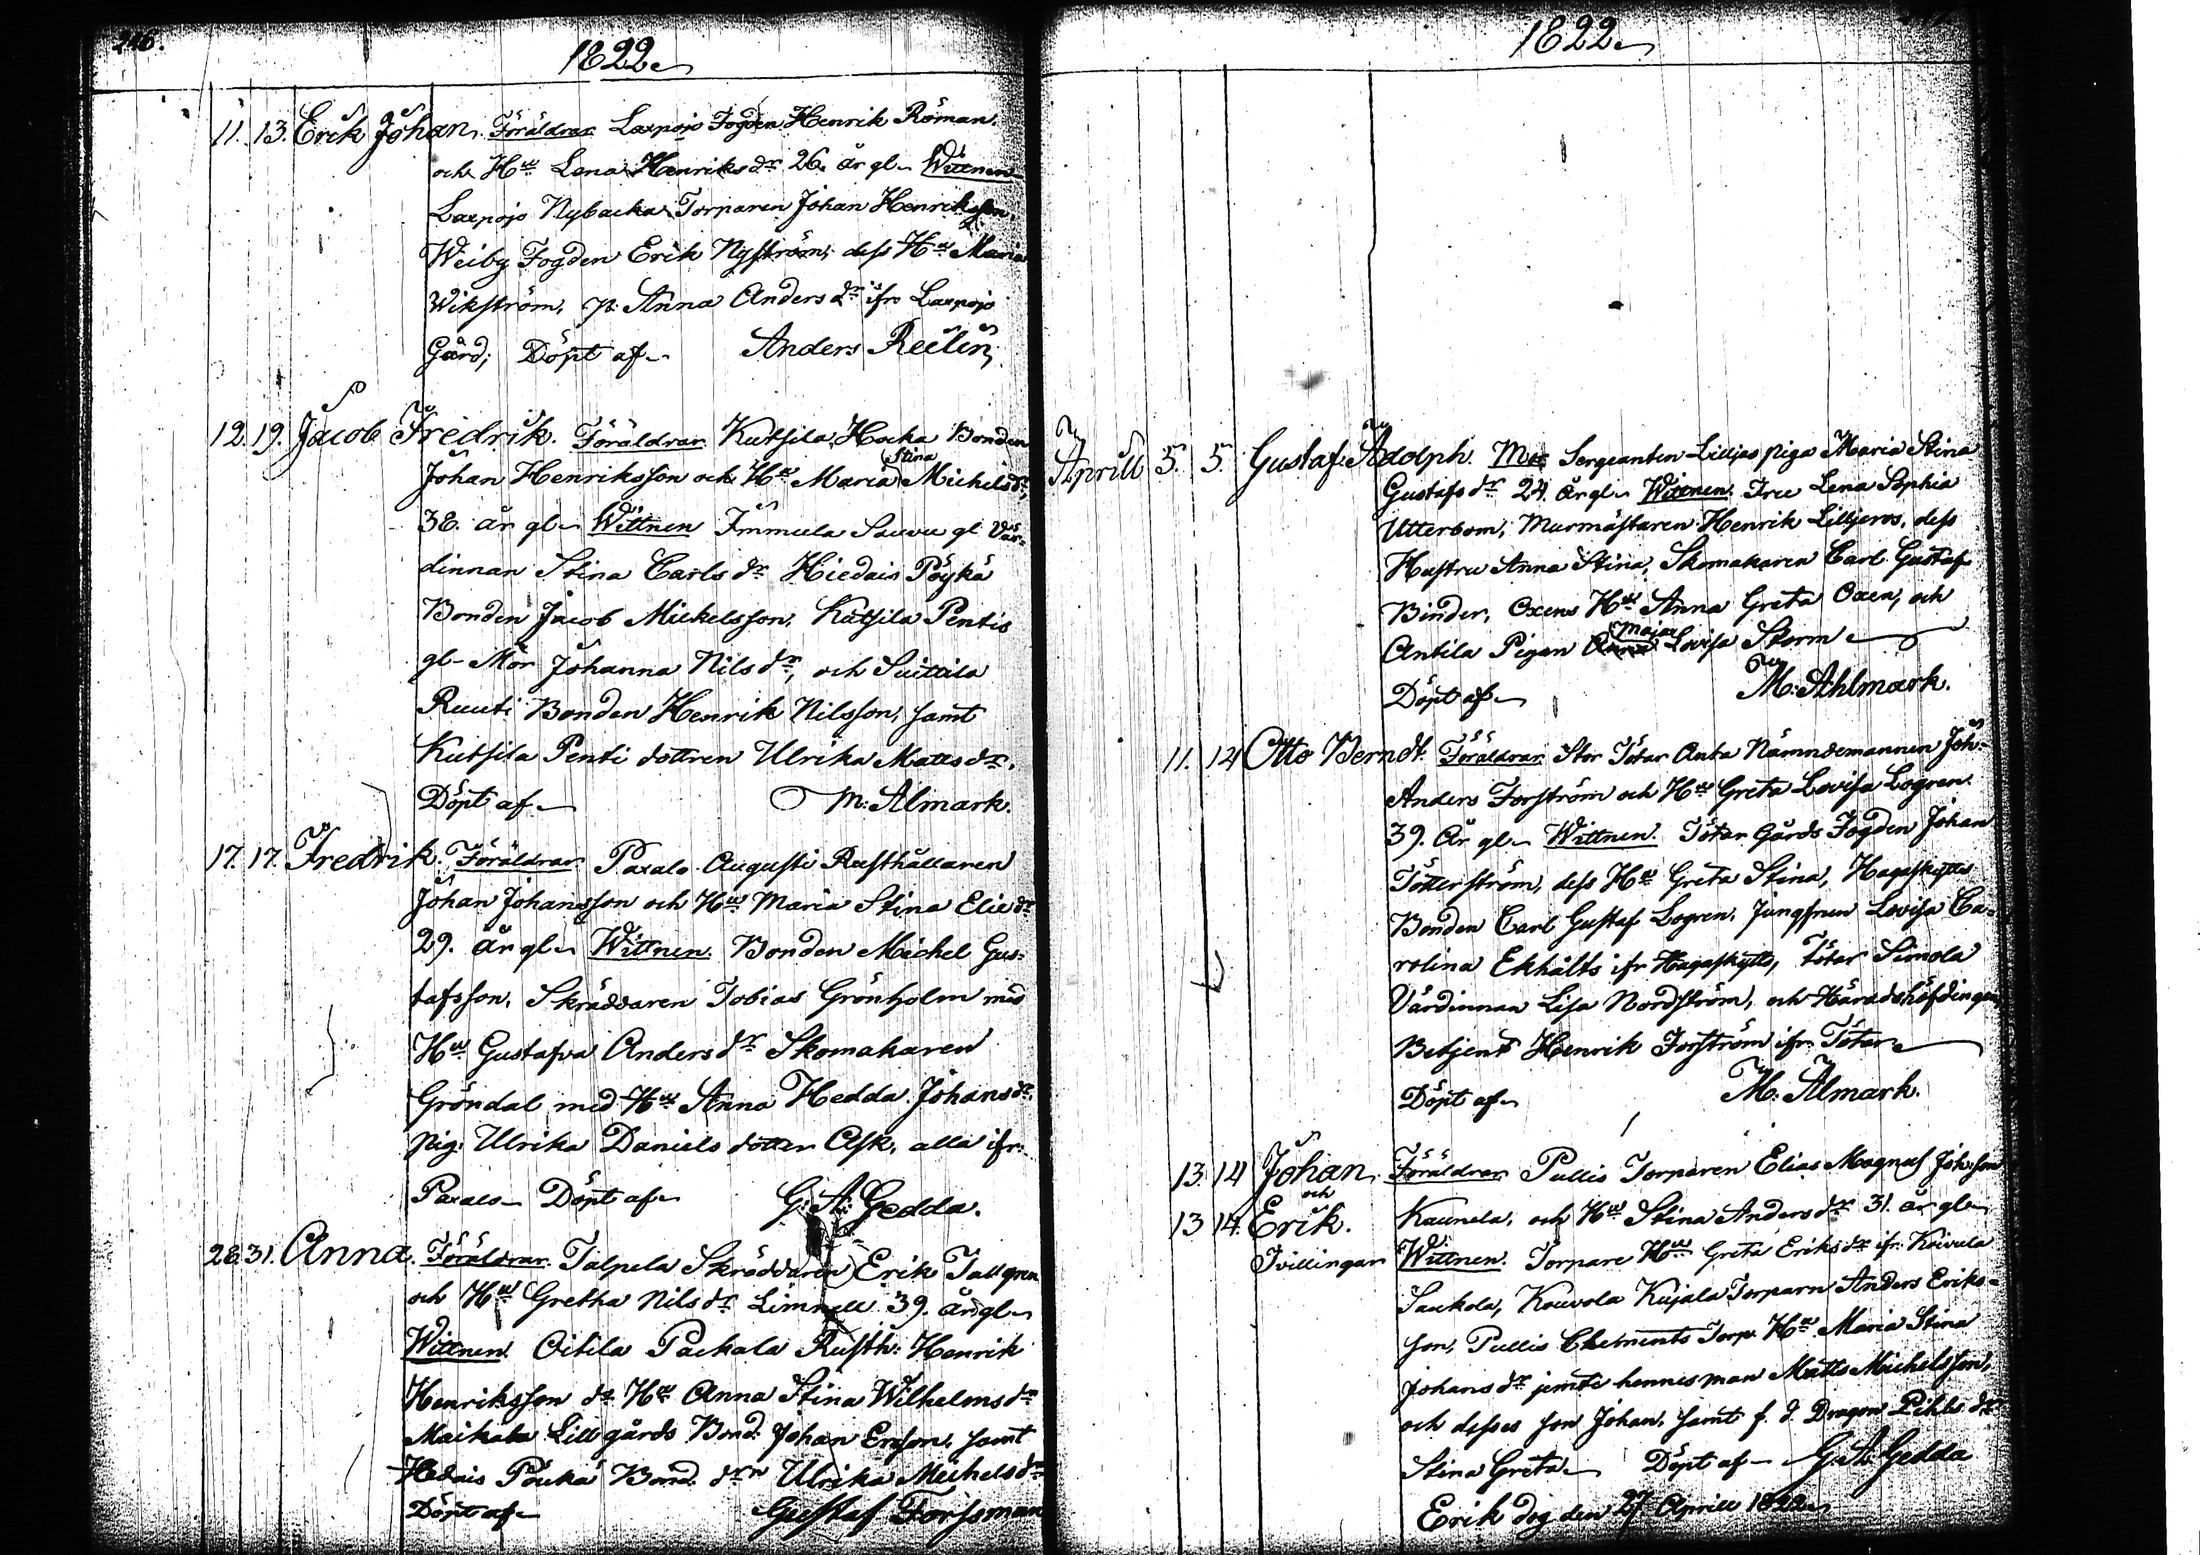 216.
1822
11. 13. Erik Johan. Föräldrar Laxpojo Fogden Henrik Röman,
och Hu Lena Henriksdr 26. år gl. Wittnen
Laxpojo Nybacka Torparen Johan Henriksson,
Weiby Fogden Erik Nyström, dess Hu Maria
Wikström, p. Anna Andersdr ifr. Laxpojo
Gård; Döpt af Anders Reelin,
12. 19. Jacob Fredrik. Föräldrar Kutsila Hocka Bonden
Johan Henriksson och Hu Maria Stina Michelsdr,
38. år gl. Wittnen Immula Sauvu gl. Vär=
dinnan Stina Carlsdr Hiedais Pöykä
Bonden Jacob Mickelsson, Kutsila Pentis
gl. Mor Johanna Nilsdr, och Suittila
Ruuti Bonden Henrik Nilsson, samt
Kutsila Penti dottren Ulrika Mattsdr.
Döpt af M: Almark.
17. 17. Fredrik. Föräldrar Paxalo Augusti Rusthållaren
Johan Johansson och Hu Maria Stina Eliedr
29. år gl. Wittnen. Bonden Michel Gus=
tafsson, Skräddaren Tobias Grönholm med
Hu Gustafva Andersdr Skomakaren
Gröndal med Hu Anna Hedda Johansdr.
pig: Ulrika Daniels dotter Ask, alla ifr.
Paxalo Döpt af G: A: Gedda.
28. 31. Anna. Föräldrar Talpela Skräddaren Erik Tallgren
och Hu Gretha Nilsdr Limnell 39. år gl.
Wittnen. Oitila Packala Rusth: Henrik
Henriksson dr Hu Anna Stina Wilhelmsdr
Maikala Lillgårds Bond. Johan Ersson, samt
Hedais Pöukä Bond. drn Ulrika Michelsdr
Döpt af Gustaf Forssman
1822
Aprill 5. 5. Gustaf Adolph. Mor Sergeanten Liljas piga Maria Stina
Gustafsdr 24. år gl. Wittnen. Fru Lena Sophia
Utterbom, Murmästaren Henrik Lilljeros, dess
Hustru Anna Stina, Skomakaren Carl Gustaf
Binder, Oxens Hu Anna Greta Oxen, och
Antila Pigan Maja Lovisa Storm
Döpt af M: Ahlmark.
11. 14 Otto Berndt. Föräldrar Stor Tötar Anta Nämndemannen Joh=
Anders Forström och Hu Greta Lovisa Logren.
39. år gl. Wittnen. Tötar Gårds Fogden Johan
Tötterström, dess Hu Greta Stina, Hagaskytts
Bonden Carl Gustaf Logren, Jungfrun Lovisa Ca=
rolina Ekhålts ifr Hagaskytts, Tötar Simola
Värdinnan Lisa Nordström, och Häradshöfdingens
Betjent Henrik Forström ifr. Tötar
Döpt af M: Almark.
13. 14 Johan. Föräldrar Pullis Torparen Elias Magnus Johsson
och
13 14. Erik. Kaunela, och Hu Stina Andersdr 31. år gl.
Tvillingar Wittnen. Torpare Hu Greta Eriksdr ifr. Koivula
Saukola, Kouvola Kujala Torparn Anders Eriks=
son, Pullis Clements Torp. Hu Maria Stina
Johansdr jemte hennes man Matts Michelsson,
och desses son Johan, samt f. d. Dragon Pihls dr
Stina Greta Döpt af G: A: Gedda
Erik dog den 27. Aprill 1822